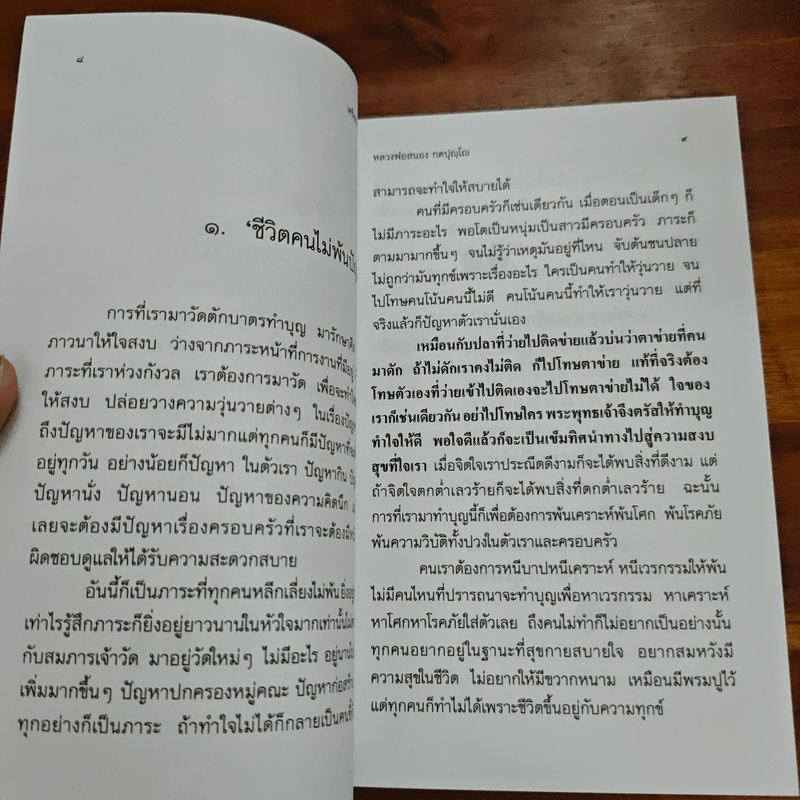 ๘
๑. ‘ชีวิตคนไม่พ้นปัญ
การที่เรามาวัดตักบาตรทำบุญ มารักษาศีล
ภาวนาให้ใจสงบ ว่างจากภาระหน้าที่การงานที่มีอยู่
ภาระที่เราห่วงกังวล เราต้องการมาวัด เพื่อจะทำใจ
ให้สงบ ปล่อยวางความวุ่นวายต่างๆ ในเรื่องปัญ
ถึงปัญหาของเราจะมีไม่มากแต่ทุกคนก็มีปัญหาที่จะ
อยู่ทุกวัน อย่างน้อยก็ปัญหา ในตัวเรา ปัญหากิน
ปัญหานั่ง ปัญหานอน ปัญหาของความคิดนึก
เลยจะต้องมีปัญหาเรื่องครอบครัวที่เราจะต้อง
ผิดชอบดูแลให้ได้รับความสะดวกสบาย
อันนี้ก็เป็นภาระที่ทุกคนหลีกเลี่ยงไม่พ้น ยิ่งอยู่
เท่าไรรู้สึกภาระก็ยิ่งอยู่ยาวนานในหัวใจมากเท่านั้น
กับสมภารเจ้าวัด มาอยู่วัดใหม่ๆ ไม่มีอะไร อยู่นาน
เพิ่มมากขึ้นๆ ปัญหาปกครองหมู่คณะ ปัญหาก่อสร้
ทุกอย่างก็เป็นภาระ ถ้าทำใจไม่ได้ก็กลายเป็นคน
หลวงพ่อสนอง กตปุญฺโญ
๙
สามารถจะทำใจให้สบายได้
คนที่มีครอบครัวก็เช่นเดียวกัน เมื่อตอนเป็นเด็กๆ ก็
ไม่มีภาระอะไร พอโตเป็นหนุ่มเป็นสาวมีครอบครัว ภาระก็
ตามมามากขึ้นๆ จนไม่รู้ว่าเหตุมันอยู่ที่ไหน จับต้นชนปลาย
ไม่ถูกว่ามันทุกข์เพราะเรื่องอะไร ใครเป็นคนทำให้วุ่นวาย จน
ไปโทษคนโน้นคนนี้ไม่ดี คนโน้นคนนี้ทำให้เราวุ่นวาย แต่ที่
จริงแล้วก็ปัญหาตัวเรานั่นเอง
เหมือนกับปลาที่ว่ายไปติดข่ายแล้วบ่นว่าตาข่ายที่คน
มาดัก ถ้าไม่ดักเราคงไม่ติด ก็ไปโทษตาข่าย แท้ที่จริงต้อง
โทษตัวเองที่ว่ายเข้าไปติดเองจะไปโทษตาข่ายไม่ได้ ใจของ
เราก็เช่นเดียวกัน อย่าไปโทษใคร พระพุทธเจ้าจึงตรัสให้ทำบุญ
ทำใจให้ดี พอใจดีแล้วก็จะเป็นเข็มทิศนำทางไปสู่ความสงบ
สุขที่ใจเรา เมื่อจิตใจเราประณีตดีงามก็จะได้พบสิ่งที่ดีงาม แต่
ถ้าจิตใจตกต่ำเลวร้ายก็จะได้พบสิ่งที่ตกต่ำเลวร้าย ฉะนั้น
การที่เรามาทำบุญนี้ก็เพื่อต้องการพ้นเคราะห์พ้นโศก พ้นโรคภัย
พ้นความวิบัติทั้งปวงในตัวเราและครอบครัว
คนเราต้องการหนีบาปหนีเคราะห์ หนีเวรกรรมให้พ้น
ไม่มีคนไหนที่ปรารถนาจะทำบุญเพื่อหาเวรกรรม หาเคราะห์
หาโศกหาโรคภัยใส่ตัวเลย ถึงคนไม่ทำก็ไม่อยากเป็นอย่างนั้น
ทุกคนอยากอยู่ในฐานะที่สุขกายสบายใจ อยากสมหวังมี
ความสุขในชีวิต ไม่อยากให้มีขวากหนาม เหมือนมีพรมปูไว้
แต่ทุกคนก็ทำไม่ได้เพราะชีวิตขึ้นอยู่กับความทุกข์